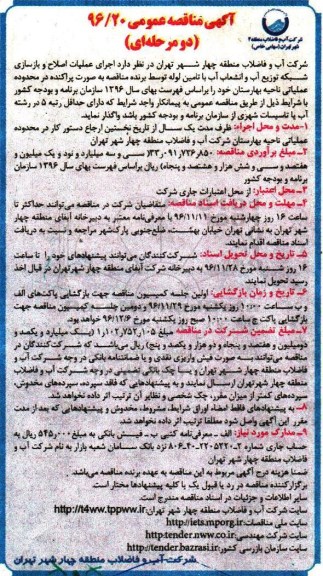 شرکت آب و فاضلاب منطقه ۴
شهر تهران (سهامی خاص)
آگهی مناقصه عمومی ۹۶/۲۰
(دو مرحله‌ای)
شرکت آب و فاضلاب منطقه چهار شهر تهران در نظر دارد اجرای عملیات اصلاح و بازسازی
شبکه توزیع آب و انشعاب آب با تامین لوله توسط برنده مناقصه به صورت پراکنده در محدوده
عملیاتی ناحیه بهارستان خود را براساس فهرست بهای سال ۱۳۹۶ سازمان برنامه و بودجه کشور
با شرایط ذیل از طریق مناقصه عمومی به پیمانکار واجد شرایط که دارای حداقل رتبه ۵ در رشته
آب یا تاسیسات شهری از سازمان برنامه و بودجه کشور باشد واگذار نماید.
۱-مدت و محل اجرا: ظرف مدت یک سال از تاریخ نخستین ارجاع دستور کار در محدوده
عملیاتی ناحیه بهارستان شرکت آب و فاضلاب منطقه چهار شهر تهران
۲-مبلغ برآوردی مناقصه: ۳۳٫۰۹۱٫۷۲۶٫۸۵۰ (سی و سه میلیارد و نود و یک میلیون و
هفتصد و سی و شش هزار و هشتصد و پنجاه) ریال براساس فهرست بهای سال ۱۳۹۶ سازمان
برنامه و بودجه کشور
۳-محل اعتبار: از محل اعتبارات جاری شرکت
۴-مهلت و محل دریافت اسناد مناقصه: متقاضیان شرکت در مناقصه می‌توانند حداکثر تا
ساعت ۱۶ روز چهارشنبه مورخ ۹۶/۱۱/۱۱ با معرفی‌نامه معتبر به دبیرخانه آبفای منطقه چهار
شهر تهران به نشانی تهران خیابان بهشت، ضلع‌جنوبی پارک‌شهر مراجعه و نسبت به دریافت
اسناد مناقصه اقدام نمایند.
۵-تاریخ و محل تحویل اسناد: شرکت‌کنندگان می‌توانند پیشنهادهای خود را تا ساعت
۱۶ روز شنبه مورخ ۹۶/۱۱/۲۸ به دبیرخانه شرکت آبفای منطقه چهار شهر تهران در قبال اخذ
رسید تحویل نمایند.
۶-تاریخ و زمان بازگشایی: اولین جلسه کمیسیون مناقصه جهت بازگشایی پاکت‌های الف
و ب ساعت ۱۰:۰۰ روز یکشنبه مورخ ۹۶/۱۱/۲۹ و دومین جلسه کمیسیون مناقصه جهت
بازگشایی پاکت ج ساعت ۱۰:۰۰ صبح روز یکشنبه مورخ ۹۶/۱۲/۶ خواهد بود.
۷-مبلغ تضمین شرکت در مناقصه مبلغ ۱٫۱۰۲٫۷۵۲٫۱۰۵ (یک میلیارد و یکصد و
دومیلیون و هفتصد و پنجاه و دو هزار و یکصد و پنج) ریال می‌باشد که شرکت‌کنندگان در
مناقصه می‌توانند به صورت فیش واریزی نقدی و یا ضمانتنامه بانکی در وجه شرکت آب و
فاضلاب منطقه چهار شهر تهران و یا چک بانکی تضمینی در وجه شرکت آب و فاضلاب
منطقه چهار شهرتهران ارسال نمایند و به پیشنهادهایی که فاقد سپرده، سپرده‌های مخدوش،
سپرده‌های کمتر از میزان مقرر، چک شخصی و نظایر آن ترتیب اثر داده نخواهد شد.
۸- به پیشنهادهای فاقط امضاء اوراق شرایط، مشروط، مخدوش و پیشنهادهایی که بعد از مدت
مقرر این آگهی واصل شود مطلقا ترتیب اثر داده نخواهد شد.
۹-مدارک مورد نیاز: الف - معرفی‌نامه کتبی ب- فیش بانکی به مبلغ ۵۴۵٫۰۰۰ ریال به
حساب جاری شماره ۲-۲۲۰۵۳۲۲۰-۴۰-۸۰۶ نزد بانک سامان شعبه بازار به نام شرکت آب و
فاضلاب منطقه چهار شهر تهران
ضمنا هزینه درج آگهی مربوط به این مناقصه به عهده برنده مناقصه می‌باشد.
برگزارکننده مناقصه در رد یا قبول یک یا کلیه پیشنهادها مختار است.
سایر اطلاعات و جزئیات در اسناد مناقصه مندرج است.
سایت شرکت آب و فاضلاب منطقه چهار شهر تهران: http://t4ww.tppww.ir
سایت ملی مناقصات: http://iets.mporg.ir
سایت شرکت مهندسی: http:tender.nww.co.ir
سایت سازمان بازرسی کشور: http://tender.bazrasi.ir
شرکت آب و فاضلاب منطقه چهار شهر تهران